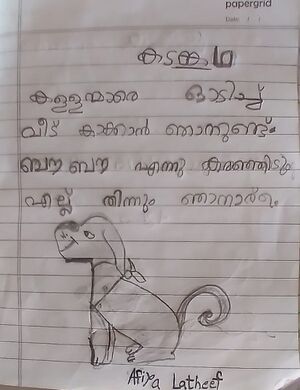 papergrid
Date: / /
കടങ്കഥ
കള്ളന്മാരെ ഓടിച്ച്
വീട് കാക്കാൻ ഞാനുണ്ട്.
ബൗ ബൗ എന്നു കുരഞ്ഞിടും
എല്ല് തിന്നും ഞാനാര്.
Afiya Latheef